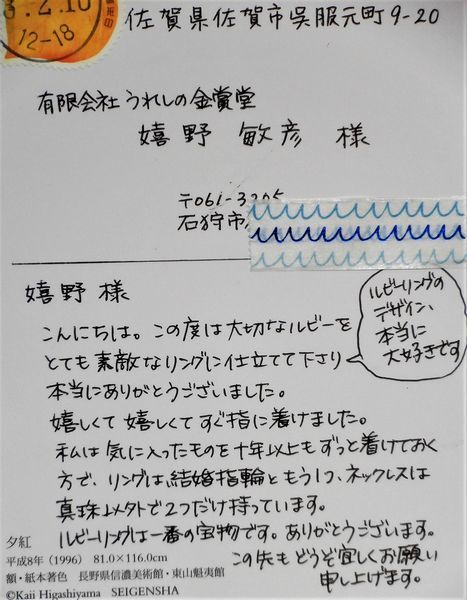 3.2.10
12-18
佐賀県佐賀市呉服元町9-20
有限会社うれしの金賞堂
嬉野 敏彦 様
〒061-3205
石狩市
嬉野様
ルビーリングの
デザイン、
本当に
大好きです
こんにちは。この度は大切なルビーを
とても素敵なリングに仕立てて下さり
本当にありがとうございました。
嬉しくて嬉しくてすぐ指に着けました。
私は気に入ったものを十年以上もずっと着けておく
方で、リングは結婚指輪ともう1つ、ネックレスは
真珠以外で2つだけ持っています。
ルビーリングは一番の宝物です。ありがとうございます。
この先もどうぞ宜しくお願い
申し上げます。
夕紅
平成8年（1996） 81.0×116.0cm
額・紙本着色 長野県信濃美術館・東山魁夷館
© Kaii Higashiyama SEIGENSHA